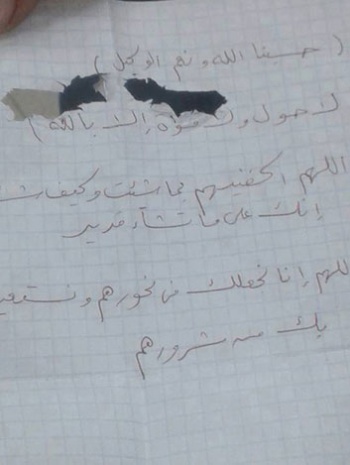 ( حسبنا الله ونعم الوكيل )
لا حول ولا قوة إلا بالله )
اللهم اكفنيهم بما شئت وكيف
إنك على ما تشاء قدير
اللهم إنا نجعلك في نحورهم
بك من شرورهم